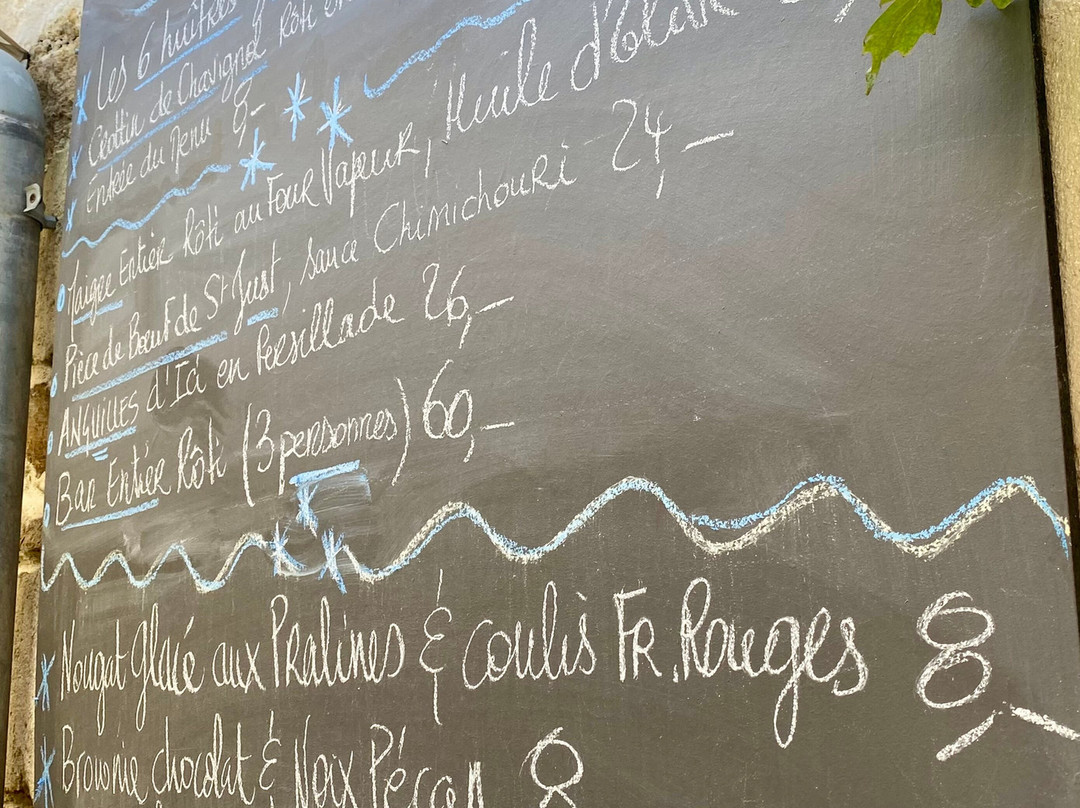 Les 6 huîtres
Crottin de Chavignol Rôti en
Entrée du Menu 8,-
Maigre Entier Rôti au Four Vapeur, Huile d'Olive
Pièce de Bœuf de St Just, sauce Chimichouri 24,-
ANGUILLES d'Ici en Persillade 26,-
Bar Entier Rôti (3 personnes) 60,-
Nougat glacé aux Pralines & coulis FR. Rouges 8,-
Brownie chocolat & Noix Pécan 8